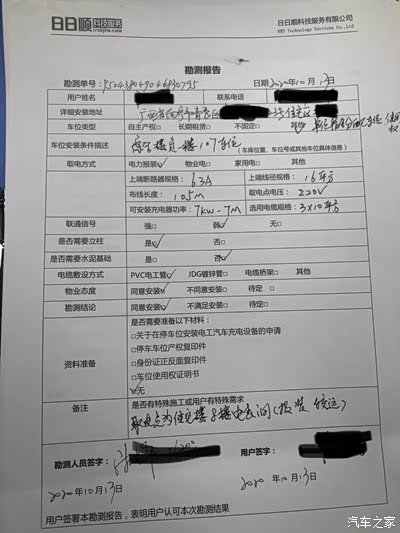 日日顺 科技服务
rrskjfw.com
日日顺科技服务有限公司
RRS Technology Services Co., Ltd
勘测报告
勘测单号: 日期 2020年10月13日
用户姓名 联系电话
详细安装地址
车位类型 自主产权□ 长期租赁□ 不固定□ 其他
车位安装条件描述 负一楼107车位 (车库位置、车位号或其他车位具体信息)
取电方式 电力报装✓ 物业电□ 家用电□ 其他
上端断路器规格: 63A 上端线径规格: 16平方
布线长度: 105M 取电点电压: 220V
可安装充电器功率: 7kw-7M 选用电缆规格: 3×10平方
联通信号 强□ 弱✓ 无□
是否需要立柱 是✓ 否□
是否需要水泥基础 是□ 否✓
电缆敷设方式 PVC电工管✓ JDG镀锌管□ 电缆桥架□ 其他
物业态度 同意安装✓ 不同意安装□ 待定 □
勘测结论 同意安装✓ 不满足安装□ 待定□
资料准备
是否需要准备以下材料:
□关于在停车位安装电工汽车充电设备的申请
□停车车位产权复印件
□身份证正反面复印件
□车位使用权证明书
✓无
备注
是否有特殊施工或用户有特殊需求
取电点为住宅楼8楼电表间
勘测人员签字: 用户签字:
2020年10月13日 2020年10月13日
用户签署本勘测报告，表明用户认可本次勘测结果
汽车之家